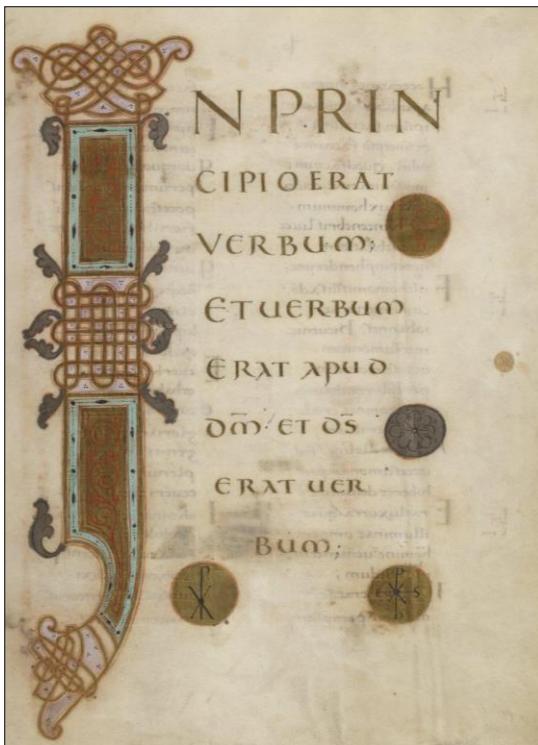 IN PRIN
CIPIO ERAT
VERBUM;
ET UERBUM
ERAT APUD
dm̄· ET dS̄
ERAT UER
BUM;